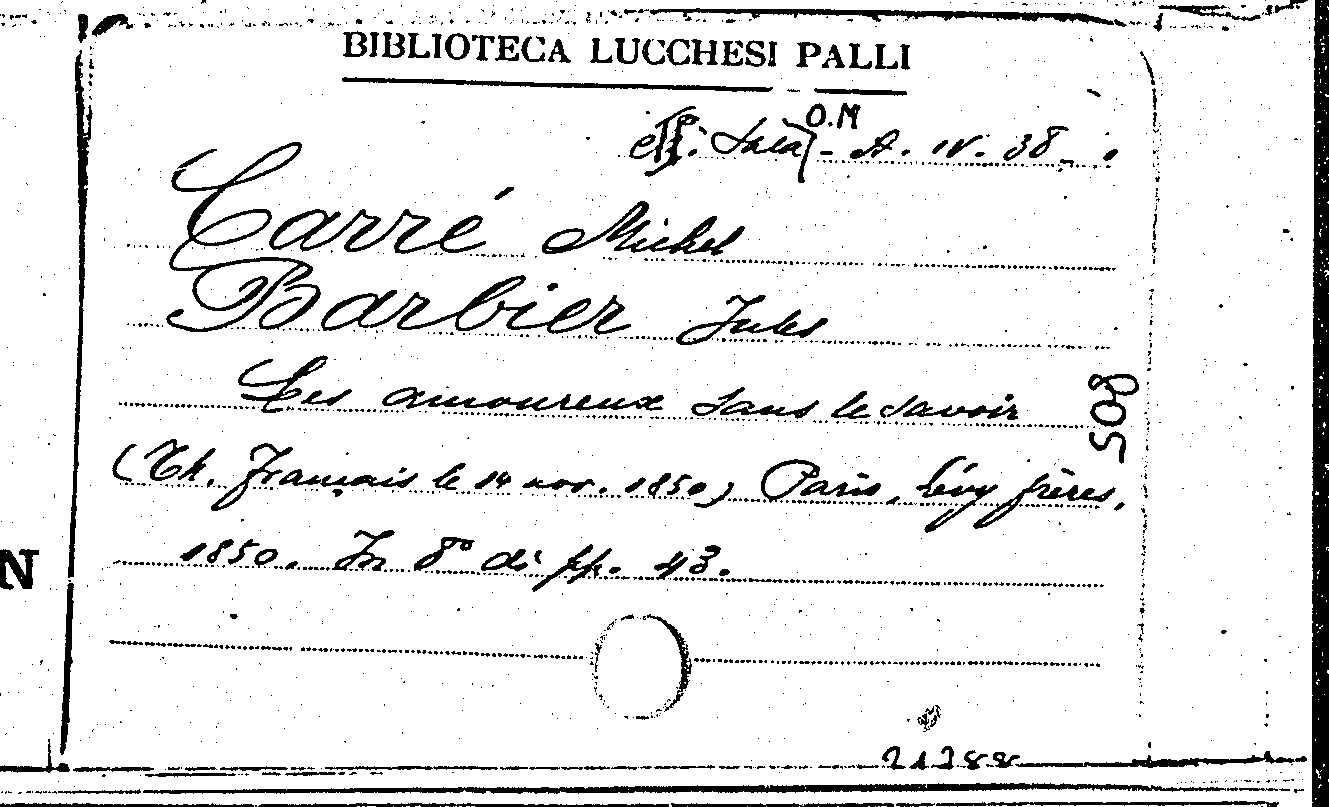 BIBLIOTECA LUCCHESI PALLI
O.M
Sala - A. IV. 38 -
Carré Michel
Barbier Jules
Les amoureux sans le savoir
508
(Th. Français le 14 nov. 1850) Paris, Lévy frères,
1850. In 8° di pp. 43.
N